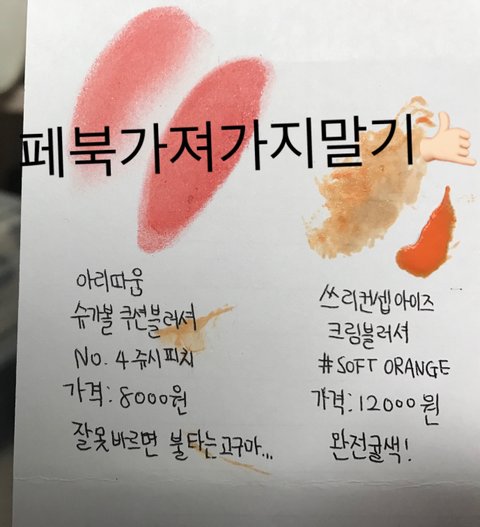 페북가져가지말기
아리따움
슈가볼 쿠션블러셔
No. 4 쥬시피치
가격: 8000원
잘못바르면 불타는고구마...
쓰리컨셉아이즈
크림블러셔
#SOFT ORANGE
가격: 12000원
완전귤색!